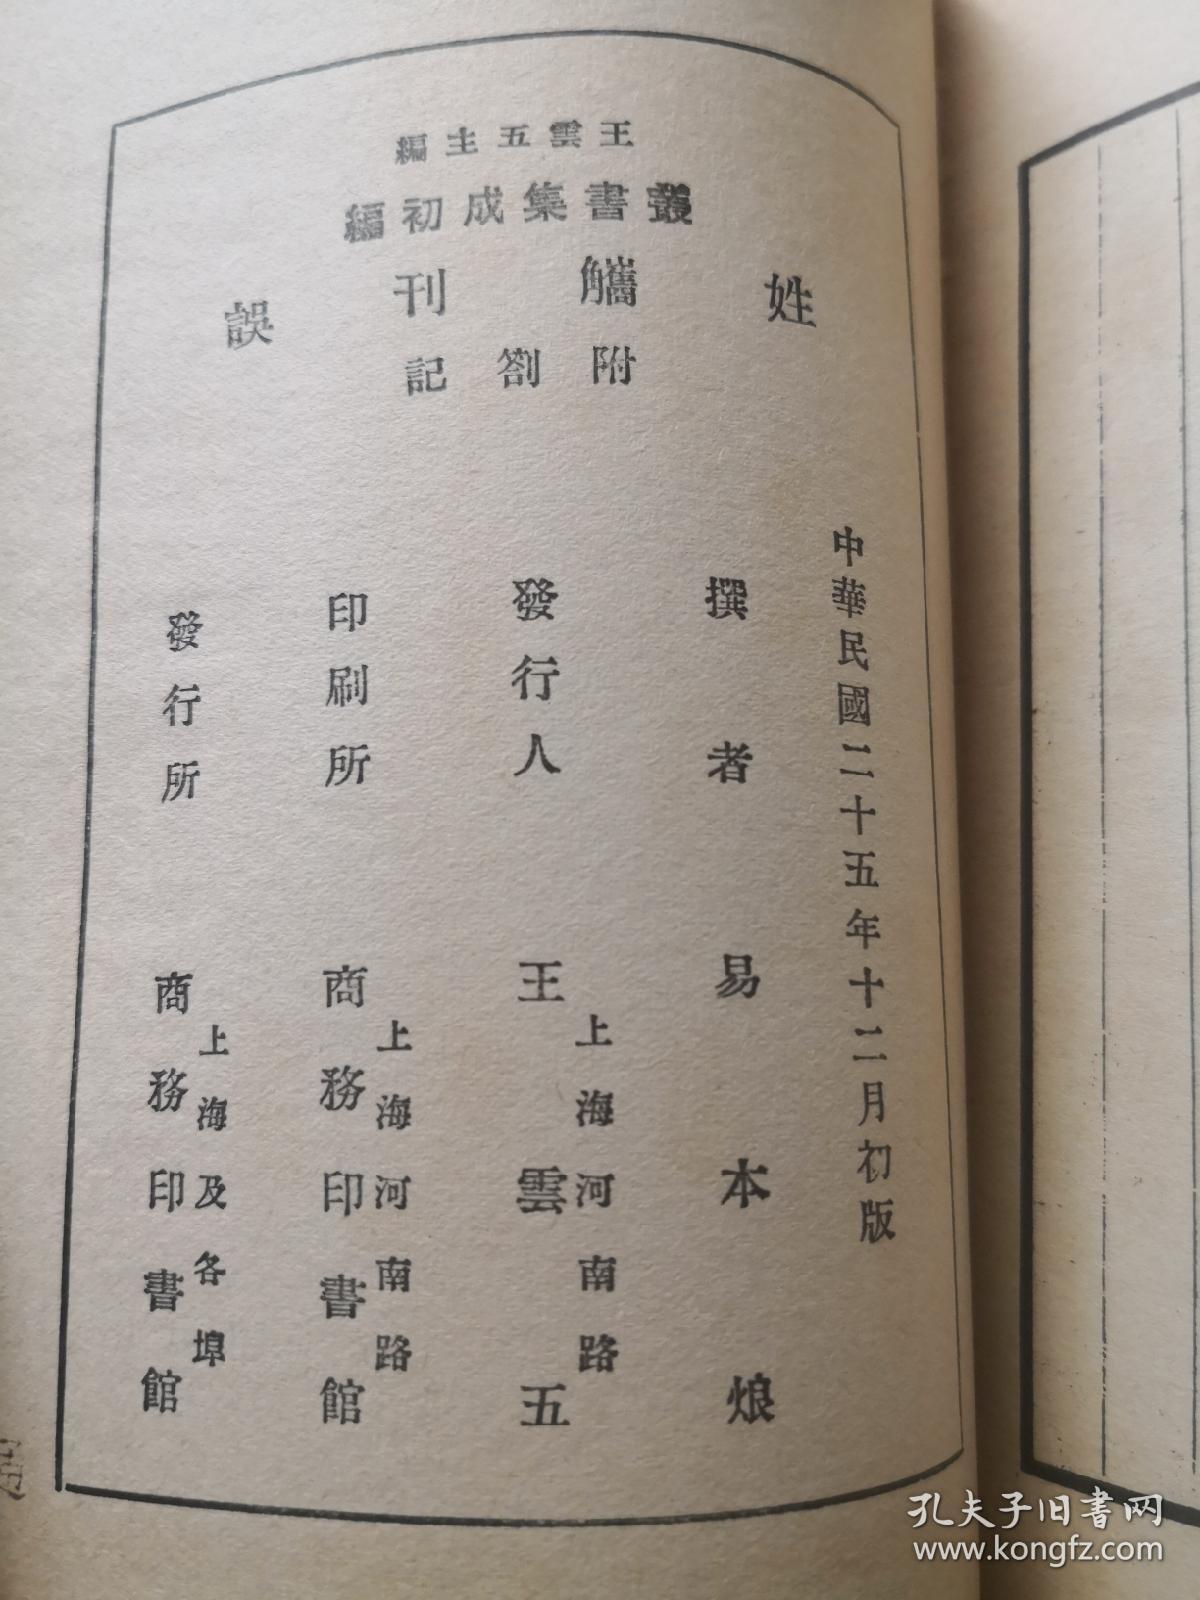 王雲五主編
叢書集成初編
姓觿刊誤
附劄記
中華民國二十五年十二月初版
撰者 易本烺
發行人 王雲五
上海河南路
印刷所 商務印書館
上海河南路
發行所 商務印書館
上海及各埠
孔夫子旧书网
www.kongfz.com